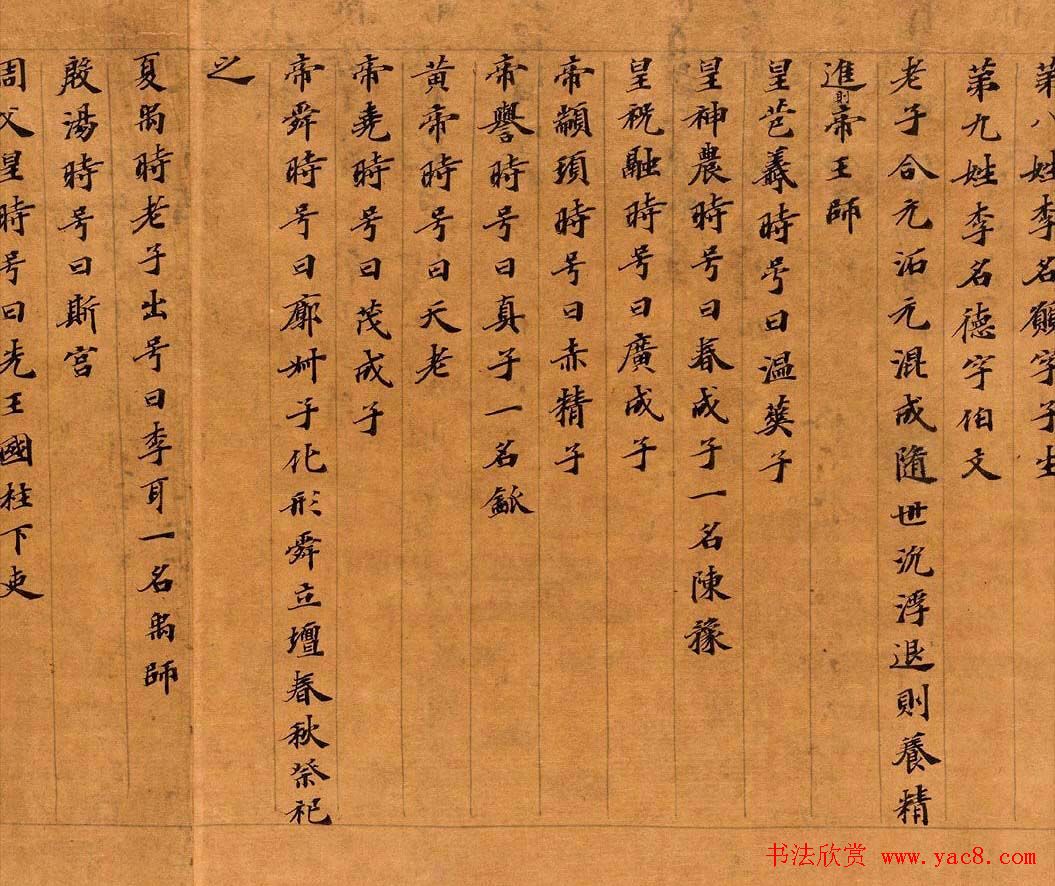 第八姓李名 字子生
第九姓李名德字伯文
老子合元沰元混成隨世沉浮退則養精
進則帝王師
皇苞羲時号曰温英子
皇神農時号曰春成子一名陳豫
皇祝融時号曰廣成子
帝顓頊時号曰赤精子
帝嚳時号曰真子一名
黄帝時号曰天老
帝堯時号曰茂成子
帝舜時号曰廓州子化形舜立壇春秋祭祀
之
夏禹時老子出号曰李耳一名禹師
殷湯時号曰斯宫
周父皇時号曰先王國柱下吏
书法欣赏 www.yac8.com